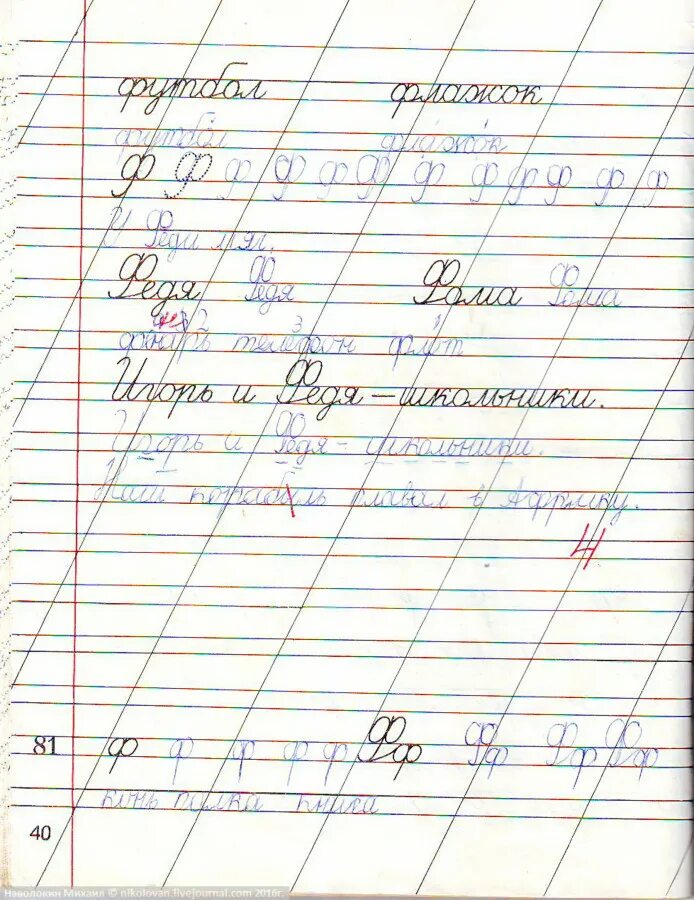 футбол флажок
футбол флажок
ф Ф ф Ф ф Ф ф ф ф ф ф ф
У Феди мяч.
Федя Федя Фома Фома
2 3 1
фонарь телефон флот
Игорь и Федя – школьники.
Игорь и Федя - школьники.
Наш корабиль плавал в Африку.
4
81 ф ф ф ф ф Фф Фф Фф Фф
конь палка книга
40
Наволокин Михаил © nikolovan.livejournal.com 2016г.